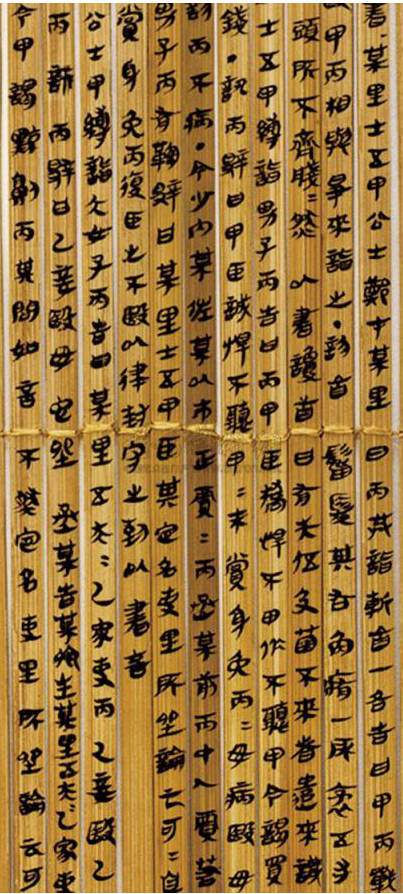 書某里士五甲公士鄭才某里曰丙共詣斬首一各告曰甲丙戰
甲丙相與爭來詣之·診首 鬢髮其右角痏一所袤五寸
頭所不齊 然 以書讂首曰有失伍及菌不來者遣來識
士五甲縛詣男子丙告曰丙甲臣橋悍不田作不聽甲令謁買
錢·訊丙辭曰甲臣誠悍不聽甲〓未賞身免丙〓毋病殹毋
診丙不病·令少內某佐某以市正賈〓丙丞某前丙中人賈若
男子丙有鞫辭曰某里士五甲臣其定名事里所坐論云可〓
賞身免丙復臣之不殹以律封守之到以書言
公士甲縛詣大女子丙告曰某里五大〓乙家吏丙乙妾殹乙
丙 訊丙辭曰乙妾殹毋它坐 丞某告某鄉主某里五大〓乙家吏
令甲謁黥劓丙其問如言不然定名事里所坐論云可